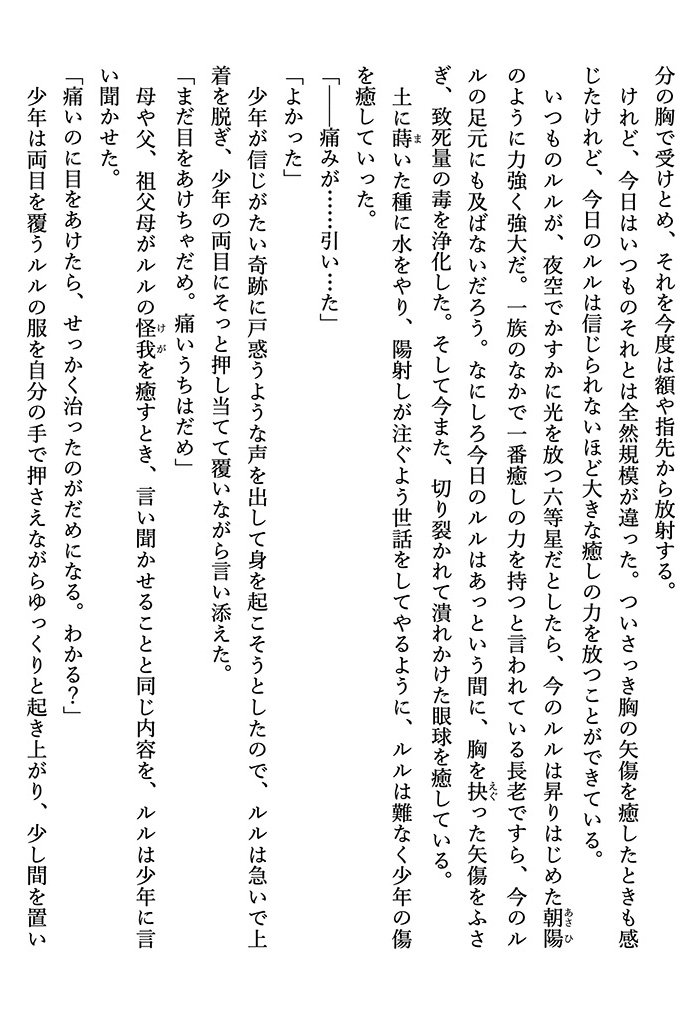 分の胸で受けとめ、それを今度は額や指先から放射する。
けれど、今日はいつものそれとは全然規模が違った。ついさっき胸の矢傷を癒したときも感
じたけれど、今日のルルは信じられないほど大きな癒しの力を放つことができている。
いつものルルが、夜空でかすかに光を放つ六等星だとしたら、今のルルは昇りはじめた朝陽
のように力強く強大だ。一族のなかで一番癒しの力を持つと言われている長老ですら、今のル
ルの足元にも及ばないだろう。なにしろ今日のルルはあっという間に、胸を抉った矢傷をふさ
ぎ、致死量の毒を浄化した。そして今また、切り裂かれて潰れかけた眼球を癒している。
土に蒔いた種に水をやり、陽射しが注ぐよう世話をしてやるように、ルルは難なく少年の傷
を癒していった。
「――痛みが……引い…た」
「よかった」
少年が信じがたい奇跡に戸惑うような声を出して身を起こそうとしたので、ルルは急いで上
着を脱ぎ、少年の両目にそっと押し当てて覆いながら言い添えた。
「まだ目をあけちゃだめ。痛いうちはだめ」
母や父、祖父母がルルの怪我を癒すとき、言い聞かせることと同じ内容を、ルルは少年に言
い聞かせた。
「痛いのに目をあけたら、せっかく治ったのがだめになる。わかる？」
少年は両目を覆うルルの服を自分の手で押さえながらゆっくりと起き上がり、少し間を置い